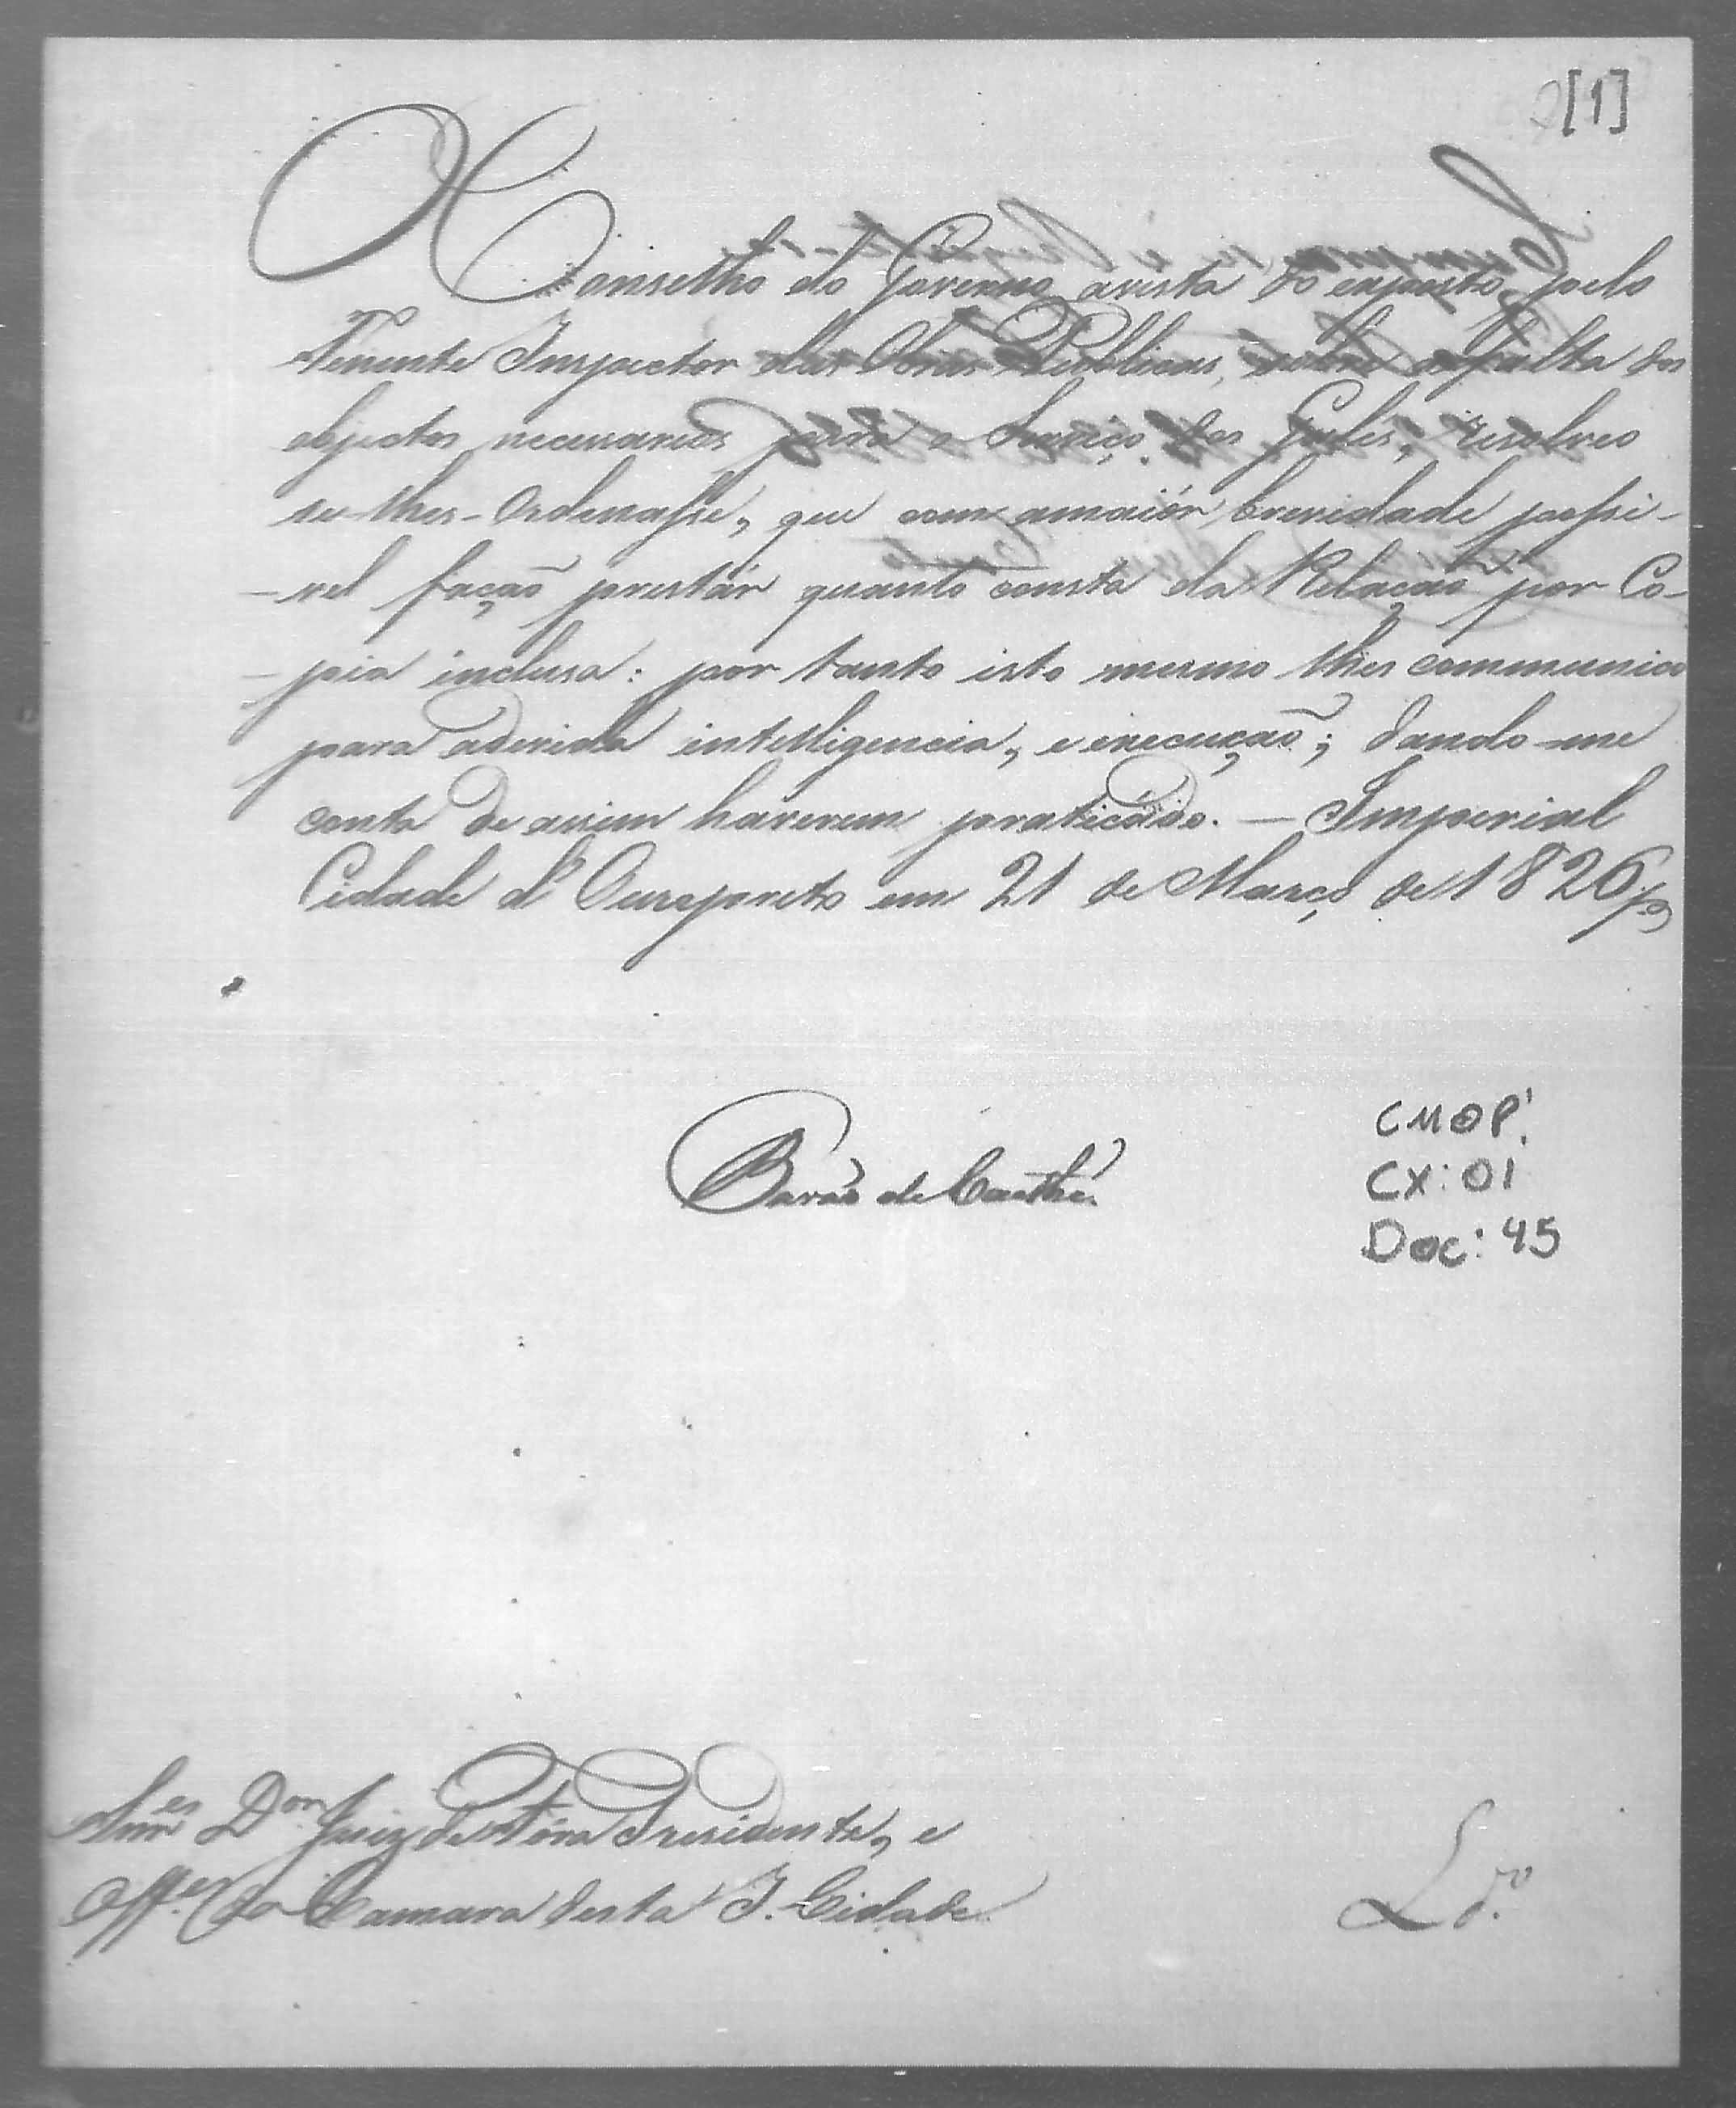 [1]
O Conselho do Governo avista do exposto pelo
Tenente Inspector das Obras Publicas, sobre a falta dos
objectos necessarios para o Serviço dos Galés, resolveo
se-lhes-Ordenasse, que com amaiór brevidade possi-
-vel fação prestár quanto consta da Relação por Co-
-pia inclusa: por tanto isto mesmo lhes communico
para adevida intelligencia, e execução; dando-me
conta de assim haverem praticádo. — Imperial
Cidade d'Ouropreto em 21 de Março de 1826
Barão de Caethé.
CMOP.
CX: 01
Doc: 45
Snres Dor Juiz de Fóra Presidente, e
Offes da Camara desta I. Cidade